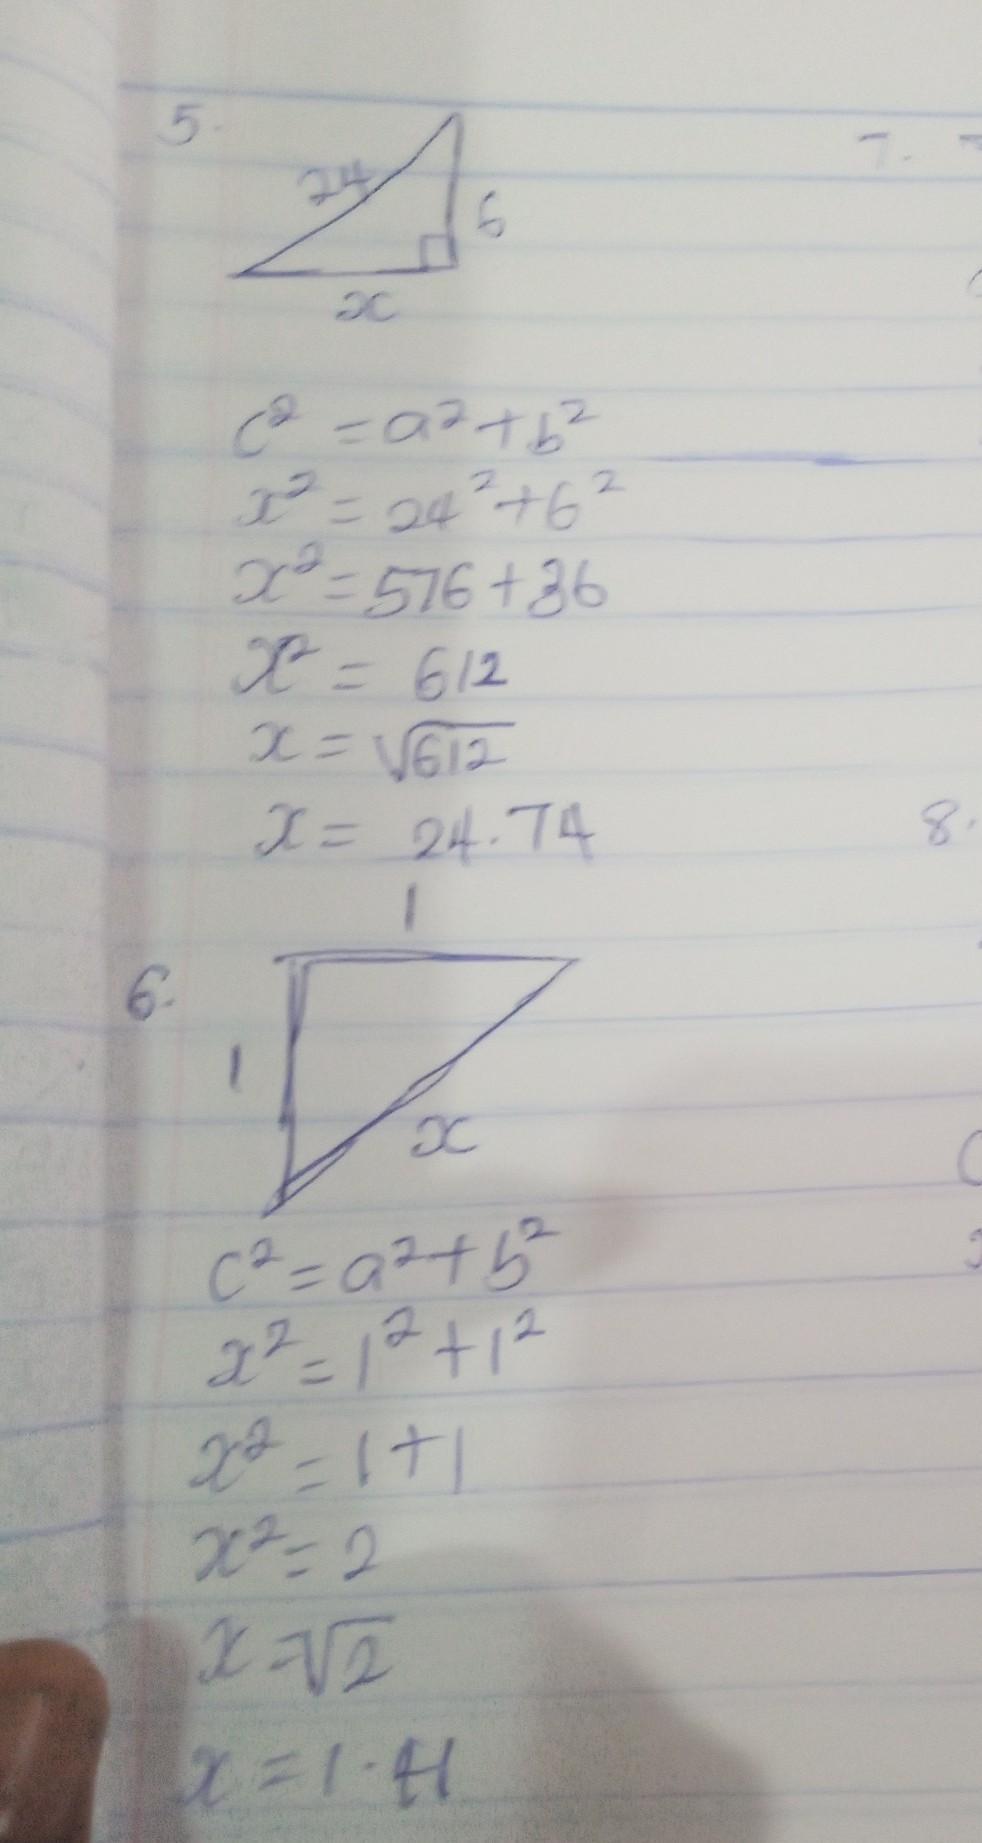 5.
24
6
x
c² = a² + b²
x² = 24² + 6²
x² = 576 + 36
x² = 612
x = √612
x = 24.74
6.
1
1
x
c² = a² + b²
x² = 1² + 1²
x² = 1 + 1
x² = 2
x = √2
x = 1.41
7.
8.